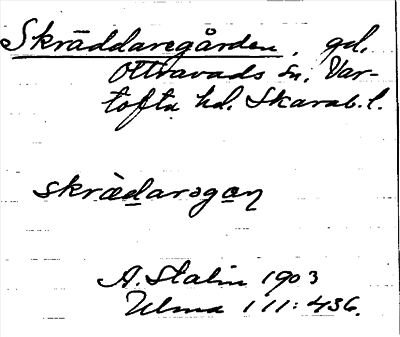 Skräddaregården, gd.
Ottravads sn. Var-
tofta hd. Skarab. l.
skrædarəgaɳ
A. Stalin 1903
Ulma 111:436.